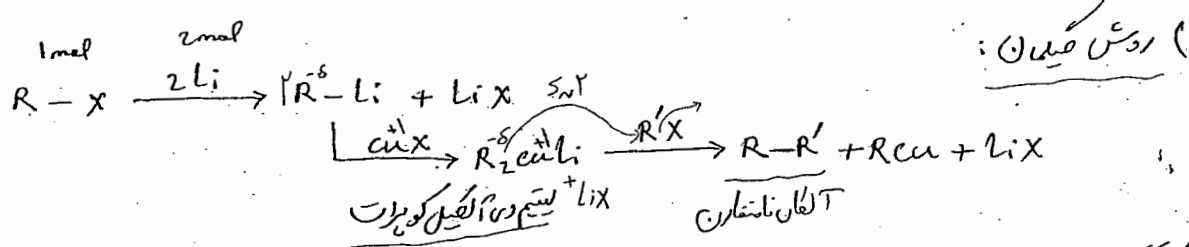 ) روش گیلمان :
1mol 2mol
R – X —2Li→ ۲R⁻ᵟ–Li + LiX
CuX⁺¹→ R₂⁻ᵟCu⁺¹Li —R'X→ R–R' + RCu + LiX
SN۲
لیتیم دی آلکیل کوپرات +LiX آلکان نامتقارن